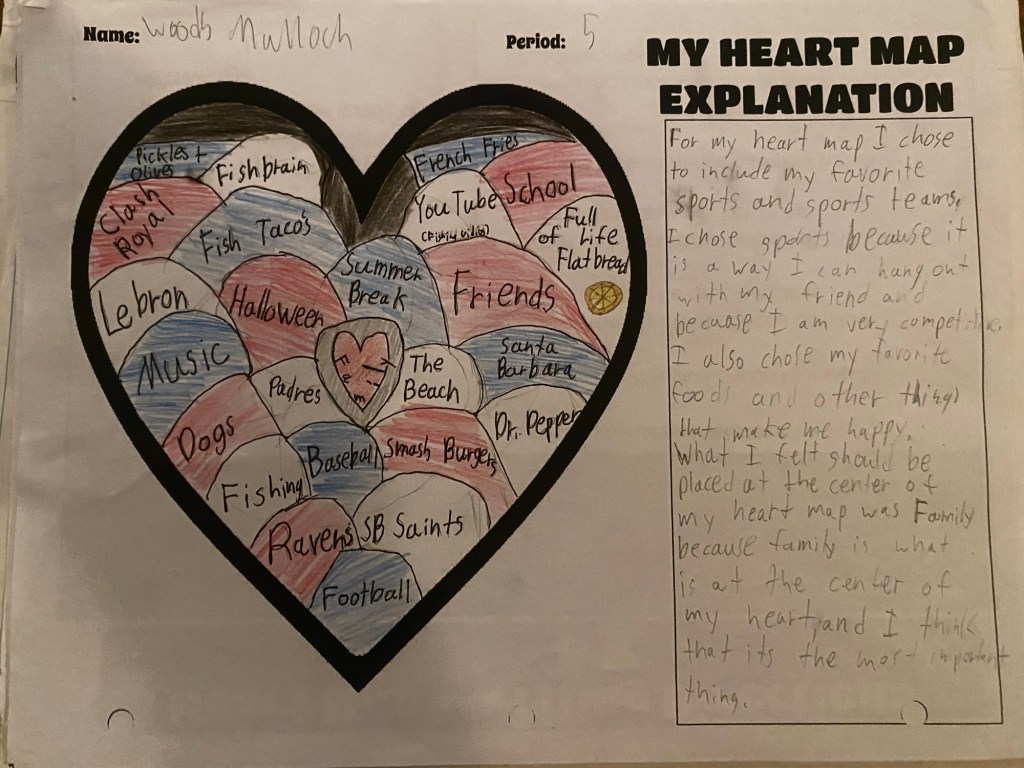 Name: Woods Mulloch
Period: 5
MY HEART MAP
EXPLANATION
Pickles +
Olives
Fishbrain
Clash
Royal
Fish Taco's
Lebron
Halloween
Summer
Break
Music
Padres
Family
Dogs
Baseball
Fishing
Ravens
SB Saints
Football
French Fries
School
YouTube
(Fishing vidios)
Full
of Life
Flatbread
Friends
The
Beach
Santa
Barbara
Dr. Pepper
Smash Burgers
For my heart map I chose
to include my favorite
sports and sports teams.
I chose sports because it
is a way I can hang out
with my friend and
because I am very competitive.
I also chose my favorite
foods and other things
that make me happy.
What I felt should be
placed at the center of
my heart map was Family
because family is what
is at the center of
my heart, and I think
that its the most important
thing.